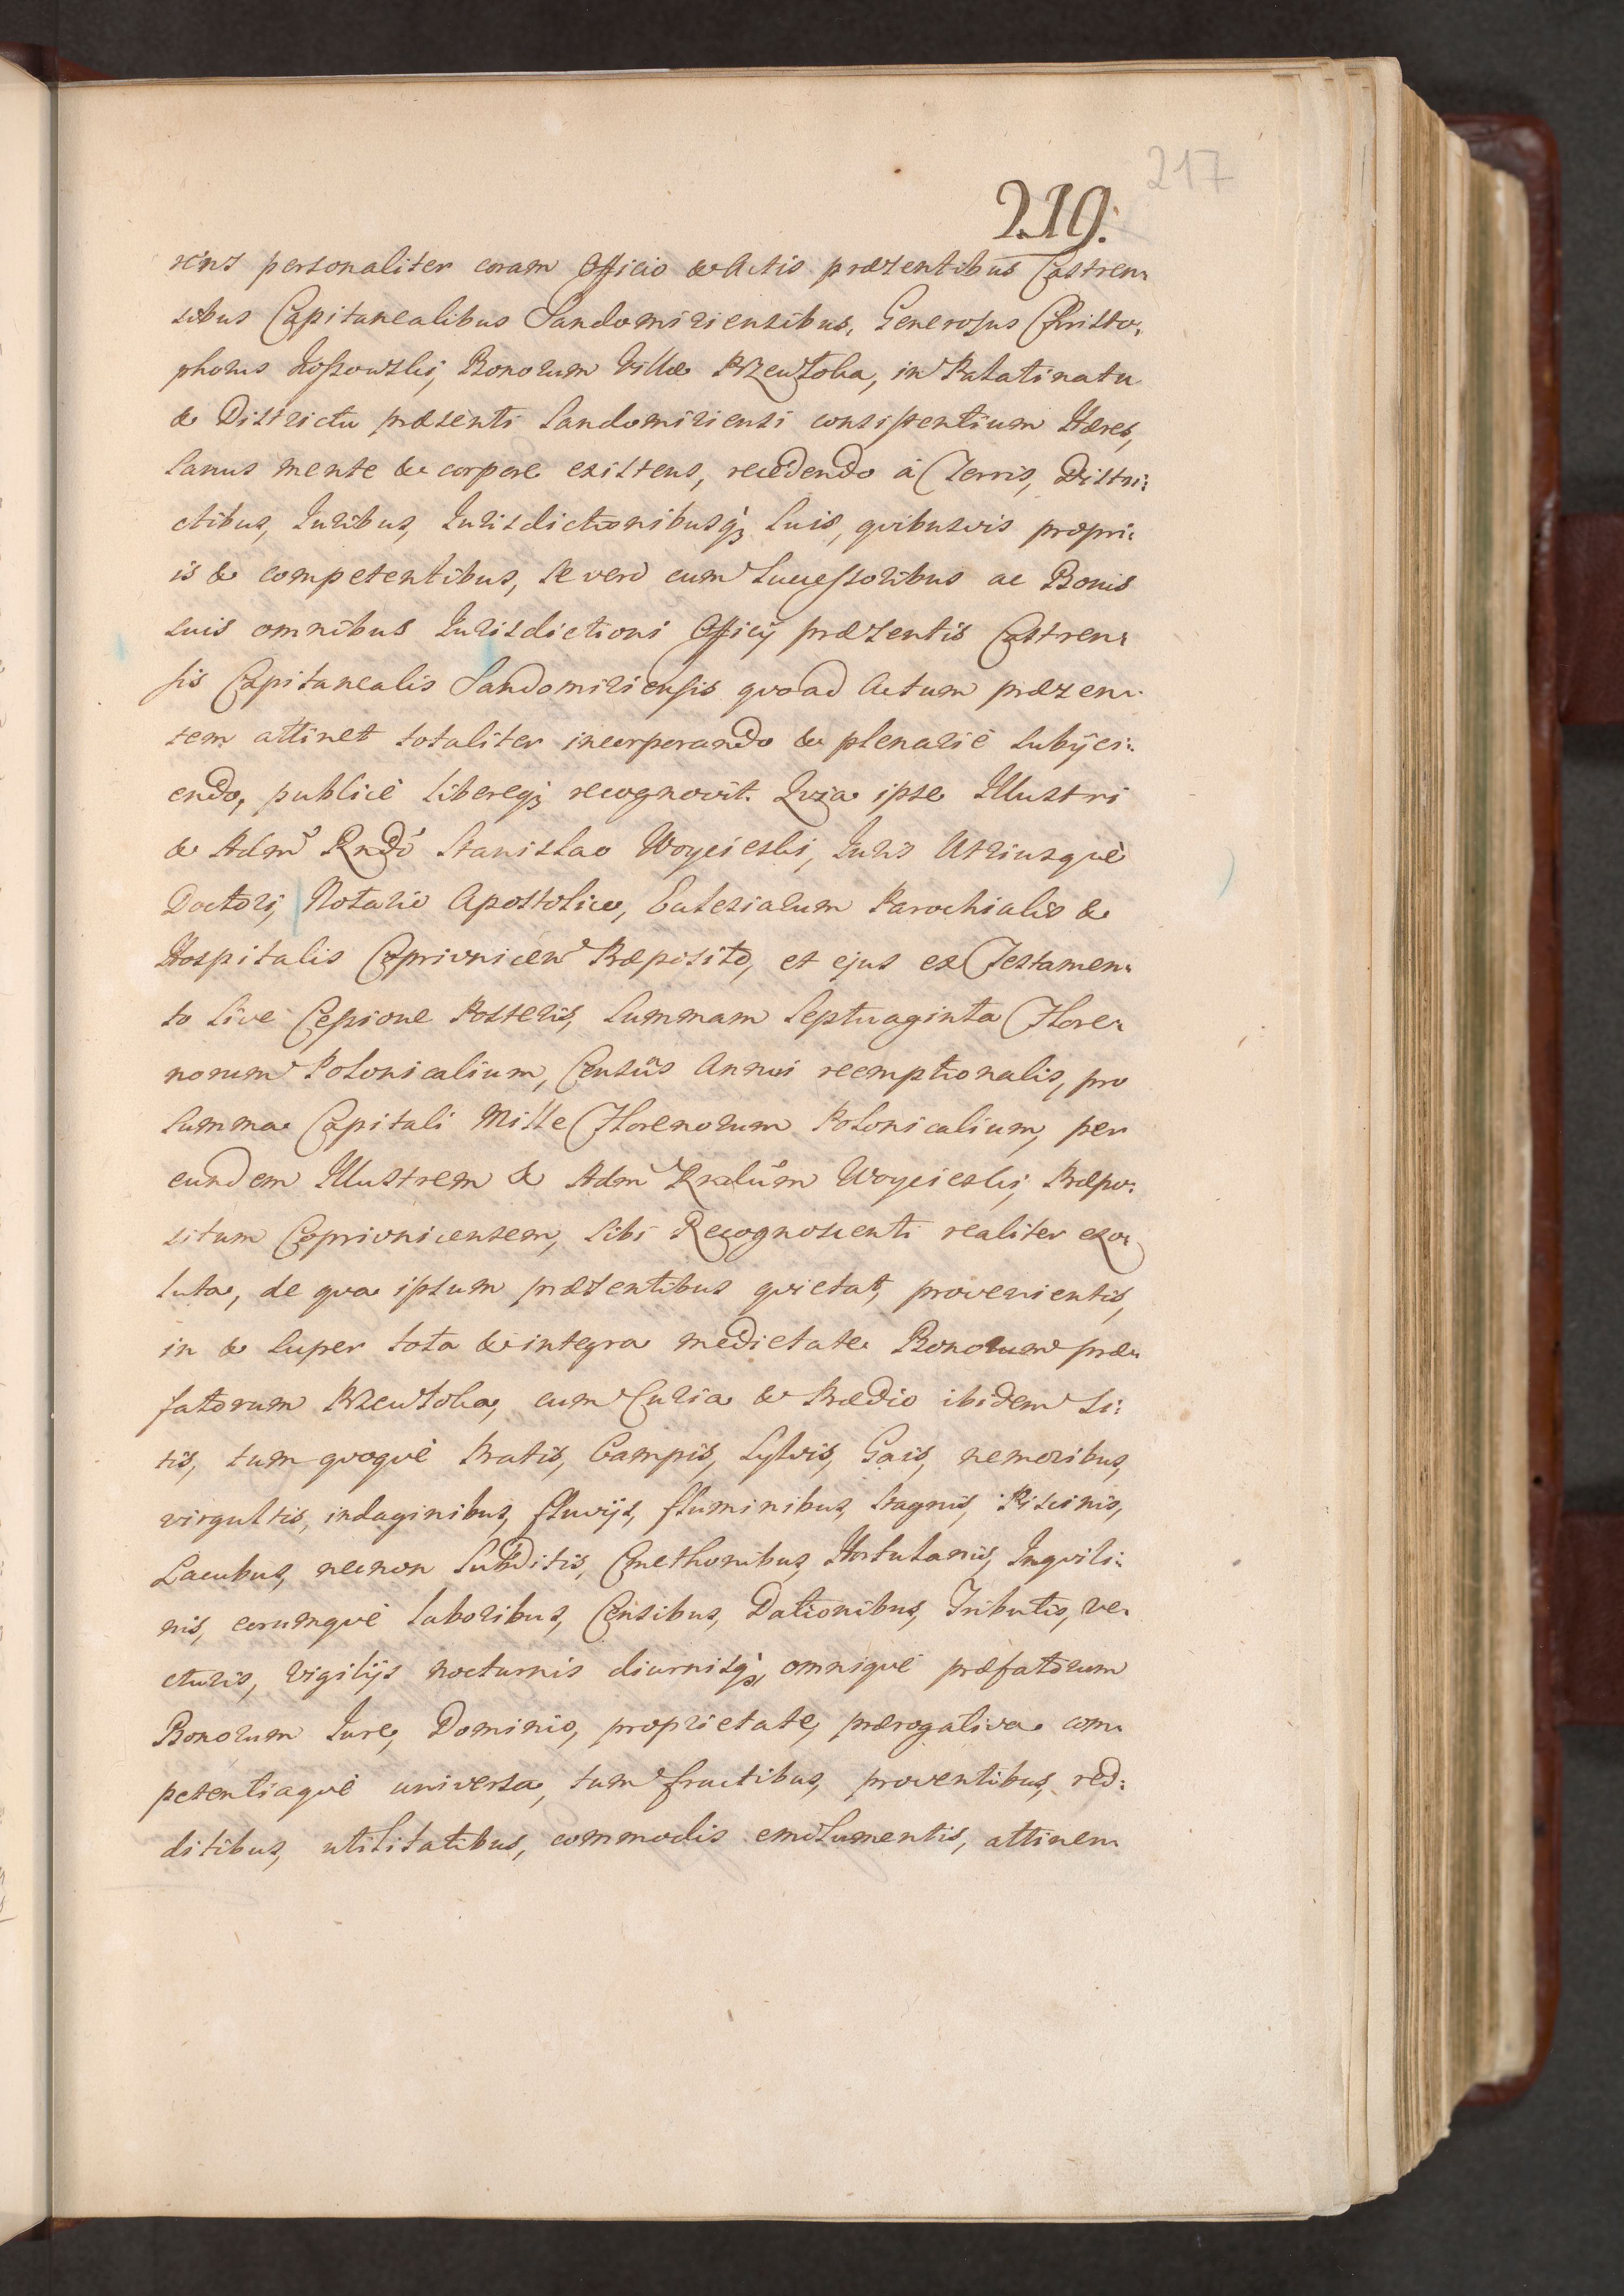 217
219.
rens personaliter coram Officio & Actis præsentibus Castren:
sibus Capitanealibus Sandomiriensibus, Generosus Christo:
phorus Koſsowski, Bonorum Villæ Przewłoka, in Palatinatu
& Districtu præsenti Sandomiriensi consistentium Hæres,
Sanus mente & corpore existens, recedendo à Terris, Distri:
ctibus, Iuribus, Iurisdictionibusq; suis, qvibusvis propri:
is & competentibus, se vero cum Succeſsoribus ac Bonis
suis omnibus Iurisdictioni Officij præsentis Castren:
sis Capitanealis Sandomiriensis qvoad Actum præsen:
tem attinet totaliter incorporando & plenariè subijci:
endo, publicè libereq; recognovit. Qvia ipse Illustri
& Adm̃ Rndo Stanislao Woycieski, Iuris Utriusqvè
Doctori, Notario Apostolico, Ecclesiarum Parochialis &
Hospitalis Coprivnicen Præposito, et ejus ex Testamen:
to sive Ceſsione Posteris, Summam Septuaginta Flore:
norum Polonicalium, Censûs Annui reemptionalis, pro
Summa Capitali Mille Florenorum Polonicalium, per
eundem Illustrem & Adm̃ Rndum Woycieski, Præpo:
situm Coprivnicensem, sibi Recognoscenti realiter exo:
luta, de qva ipsum præsentibus qvietat, provenientis,
in & super tota & integra medietate Bonorum præ:
fatorum Przewłoka, cum Curia & Prædio ibidem si:
tis, tum qvoqvè Pratis, Campis, Sylvis, Gais, nemoribus,
virgultis, indaginibus, fluvijs, fluminibus, stagnis, Piscinis,
Lacubus, necnon Subditis, Cmethonibus, Hortulanis, Inqvili:
nis, eorumqvè laboribus, Censibus, Dationibus, Tributis, ve:
cturis, Vigilijs nocturnis diurnisq;, omniqvè præfatorum
Bonorum Iure, Dominio, proprietate, prærogativa com:
petentiaqvè universa, tum fructibus, proventibus, red:
ditibus, utilitatibus, commodis emolumentis, attinen: